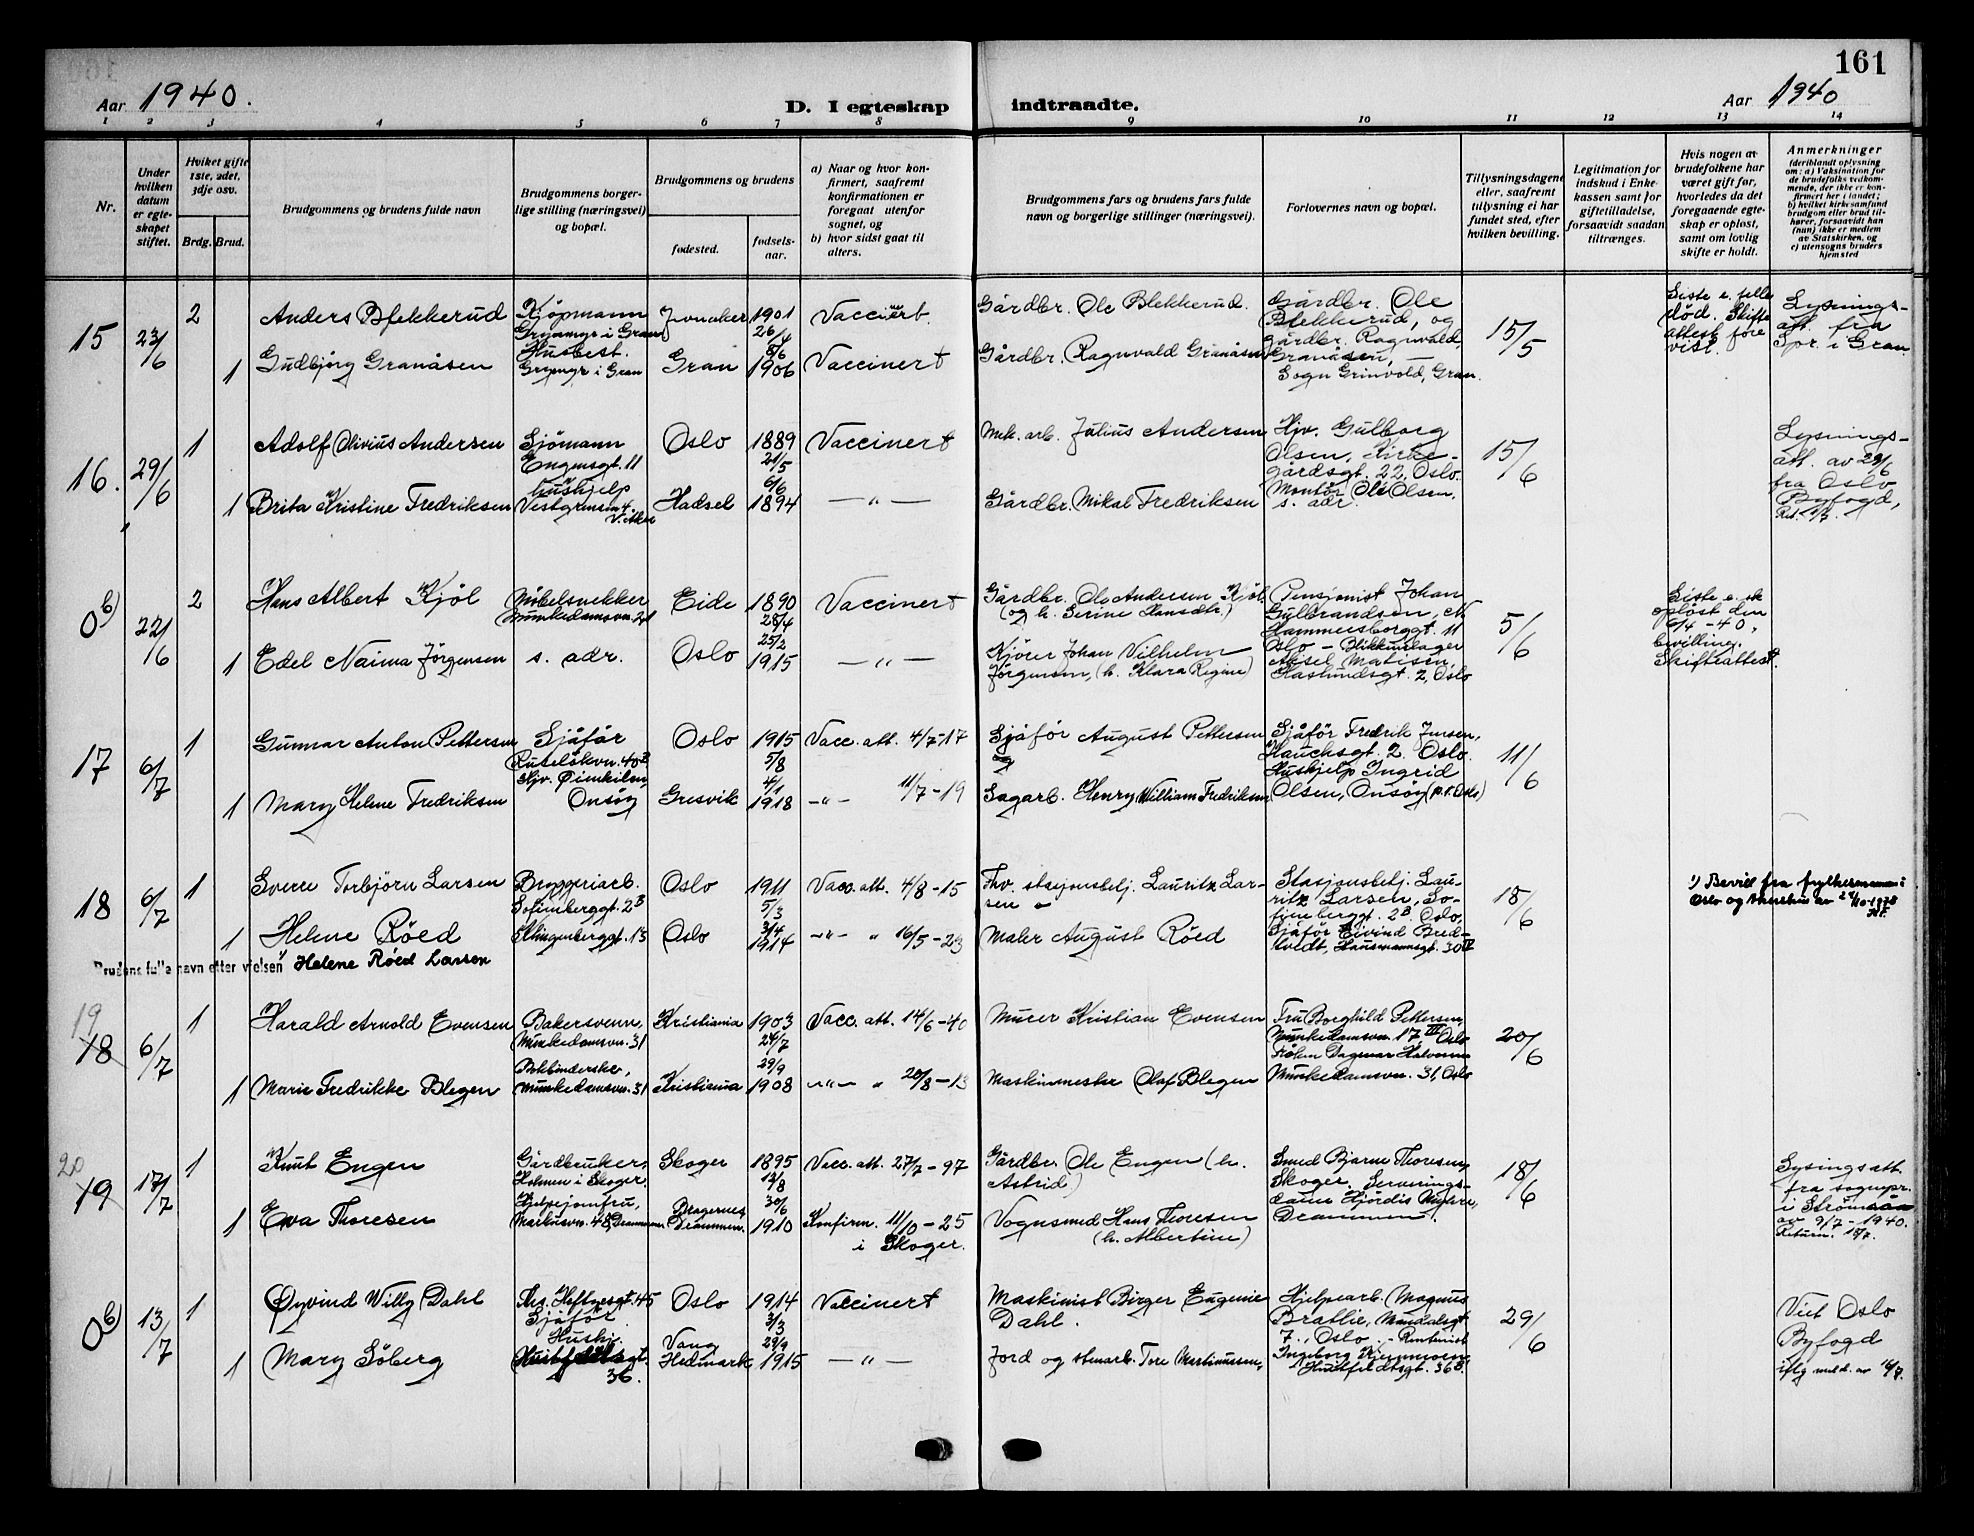 161
Aar 1940.
D. I egteskap indtraadte.
Aar 1940
1 2 3 4 5 6 7 8 9 10 11 12 13 14
Nr.
Under hvilken datum er egteskapet stiftet.
Hvilket gifte 1ste, 2det, 3dje osv.
Brdg. Brud.
Brudgommens og brudens fulde navn
Brudgommens borgerlige stilling (næringsvei) og bopæl.
Brudgommens og brudens
fødested.
fødselsaar.
a) Naar og hvor konfirmert, saafremt konfirmationen er foregaat utenfor sognet, og
b) hvor sidst gaat til alters.
Brudgommens fars og brudens fars fulde navn og borgerlige stillinger (næringsvei).
Forlovernes navn og bopæl.
Tillysningsdagene eller, saafremt tillysning ei har fundet sted, efter hvilken bevilling.
Legitimation for indskud i Enkekassen samt for giftetilladelse, forsaavidt saadan tiltrænges.
Hvis nogen av brudefolkene har været gift før, hvorledes da det foregaaende egteskap er opløst, samt om lovlig skifte er holdt.
Anmerkninger (deriblandt oplysning om: a) Vaksination for de brudefolks vedkommende, der ikke er konfirmert her i landet; b) hvilket kirkesamfund brudgom eller brud tilhører, forsaavidt han (hun) ikke er medlem av Statskirken, og c) utensogns bruders hjemsted
15 23/6 2 Anders Blekkerud Kjøpmann Grymyr i Gran Jevnaker 1901 26/4 Vaccinert. Gårdbr. Ole Blekkerud. Gårdbr. Ole Blekkerud, og gårdbr. Ragnvald Granåsen, — Sogn Grinvold, Gran. 15/5 Siste e. felle død. Skifteattest forevist. Lysningsatt. fra Spr. i Gran
1 Gudbjørg Granåsen Husbest. Grymyr i Gran Gran 8/6 1906 Vaccinert Gårdbr. Ragnvald Granåsen
16. 29/6 1 Adolf Olivius Andersen Sjömann Engensgt. 11 Oslo 1889 21/5 Vaccinert Mek. arb. Julius Andersen Hjv. Gulborg Olsen, Kirkegårdsgt. 22, Oslo. Montör Ole Olsen, s. adr. 15/6 Lysningsatt. av 29/6 fra Oslo Byfogd,
1 Brita Kristine Fredriksen hushjelp Vestgrensen 4. V. Aker Hadsel 6/6 1894 — " — Gårdbr. Mikal Fredriksen
0b) 22/6 2 Hans Albert Kjöl Möbelsnekker Munkedamsvn. 21 Eide 1890 28/4 Vaccinert Gårdbr. Ole Andersen Kjöl (og h. Serine Hansdtr.) Pensjonist Johan Gulbrandsen, N. Hammersborggt. 11 Oslo – Blikkenslager Aksel Matisen, Haslundsgt. 2, Oslo 5/6 Siste e. sk. opløst den 6/4 -40, bevilling. Skifteattest.
1 Edel Naima Jörgensen s. adr. Oslo 25/2 1915 — " — Kjörer Johan Vilhelm Jörgensen, (h. Klara Regine)
17 6/7 1 Gunnar Anton Pettersen Sjåför Ruselökvn. 40B Oslo 1915 5/8 Vacc. att. 4/7-17 Sjåför August Pettersen og Sjåför Fredrik Jensen, Hauchsgt. 2 Oslo. Hushjelp Ingrid Olsen, Onsöy (p.t. Oslo) 11/6
1 Mary Helene Fredriksen Hjv. Öienkilen, Onsöy Gresvik 4/1 1918 -"- 11/7-19 Sagarb. Henry William Fredriksen,
18 6/7 1 Sverre Torbjörn Larsen Bryggeriarb. Sofienberggt. 2B Oslo 1911 5/3 Vacc. att. 4/8-15 Fhv. stasjonsbetj. Lauritz Larsen Stasjonsbetj. Lauritz Larsen, Sofienberggt. 2B Oslo, Sjåför Eivind Bredtvedt, Hausmannsgt. 30IV 18/6 1) Bevill fra fylkesmannen i Oslo og Akershus av 24/10-1978
1 Helene Röed Ellingenberggt. 13 Oslo 3/4 1914 -"- " 16/5-23 Maler August Röed
Brudens fulle navn etter vielsen 1) Helene Röed Larsen
19 18 6/7 1 Harald Arnold Evensen Bakersvenn, Munkedamsvn. 31 Kristiania 1903 24/7 Vacc. att. 14/6-40 Murer Kristian Evensen Fru Borghild Pettersen, Munkedamsvn. 17III Oslo Fröken Dagmar Halvorsen Munkedamsvn. 31, Oslo 20/6
1 Marie Fredrikke Blegen Bokbinderske, Munkedamsvn. 31 Kristiania 29/9 1908 -"- " 20/8-13 Maskinmester Olaf Blegen
20 19 17/7 1 Knut Engen Gårdbruker, Holmen i Skoger. Skoger 1895 13/8 Vacc. att. 27/7-97 Gårdbr. Ole Engen (h. Astrid) Smed Bjarne Thoresen, Skoger. Serveringsdame Hjördis Myhre, Drammen. 18/6 Lysingsatt. fra sognepr. i Strömsö av 9/7-1940. Return. 18/7.
1 Eva Thoresen Hjelpejomfru, Markusvn. 48, Drammen Bragernes Drammen. 30/6 1910 Konfirm. 11/10-25 i Skoger. Vognsmed Hans Thoresen (h. Albertine)
0b) 13/7 1 Øyvind Willy Dahl Ths. Heftyesgt. 45 Sjåför Oslo 1914 3/3 Vaccinert Maskinist Birger Eugenie Dahl. Hjelpearb. Magnus Bratlie, Mandalsgt 7., Oslo. - Rentenist Ingeborg Huitfeldtsgt. 36B. 29/6 Viet Oslo Byfogd iflg meld. av 16/7.
1 Mary Söberg Hushj. Huitfeldtsgt. 36. Vang Hedmark 29/9 1915 — " — Jord og stenarb. Tore Martinussen,